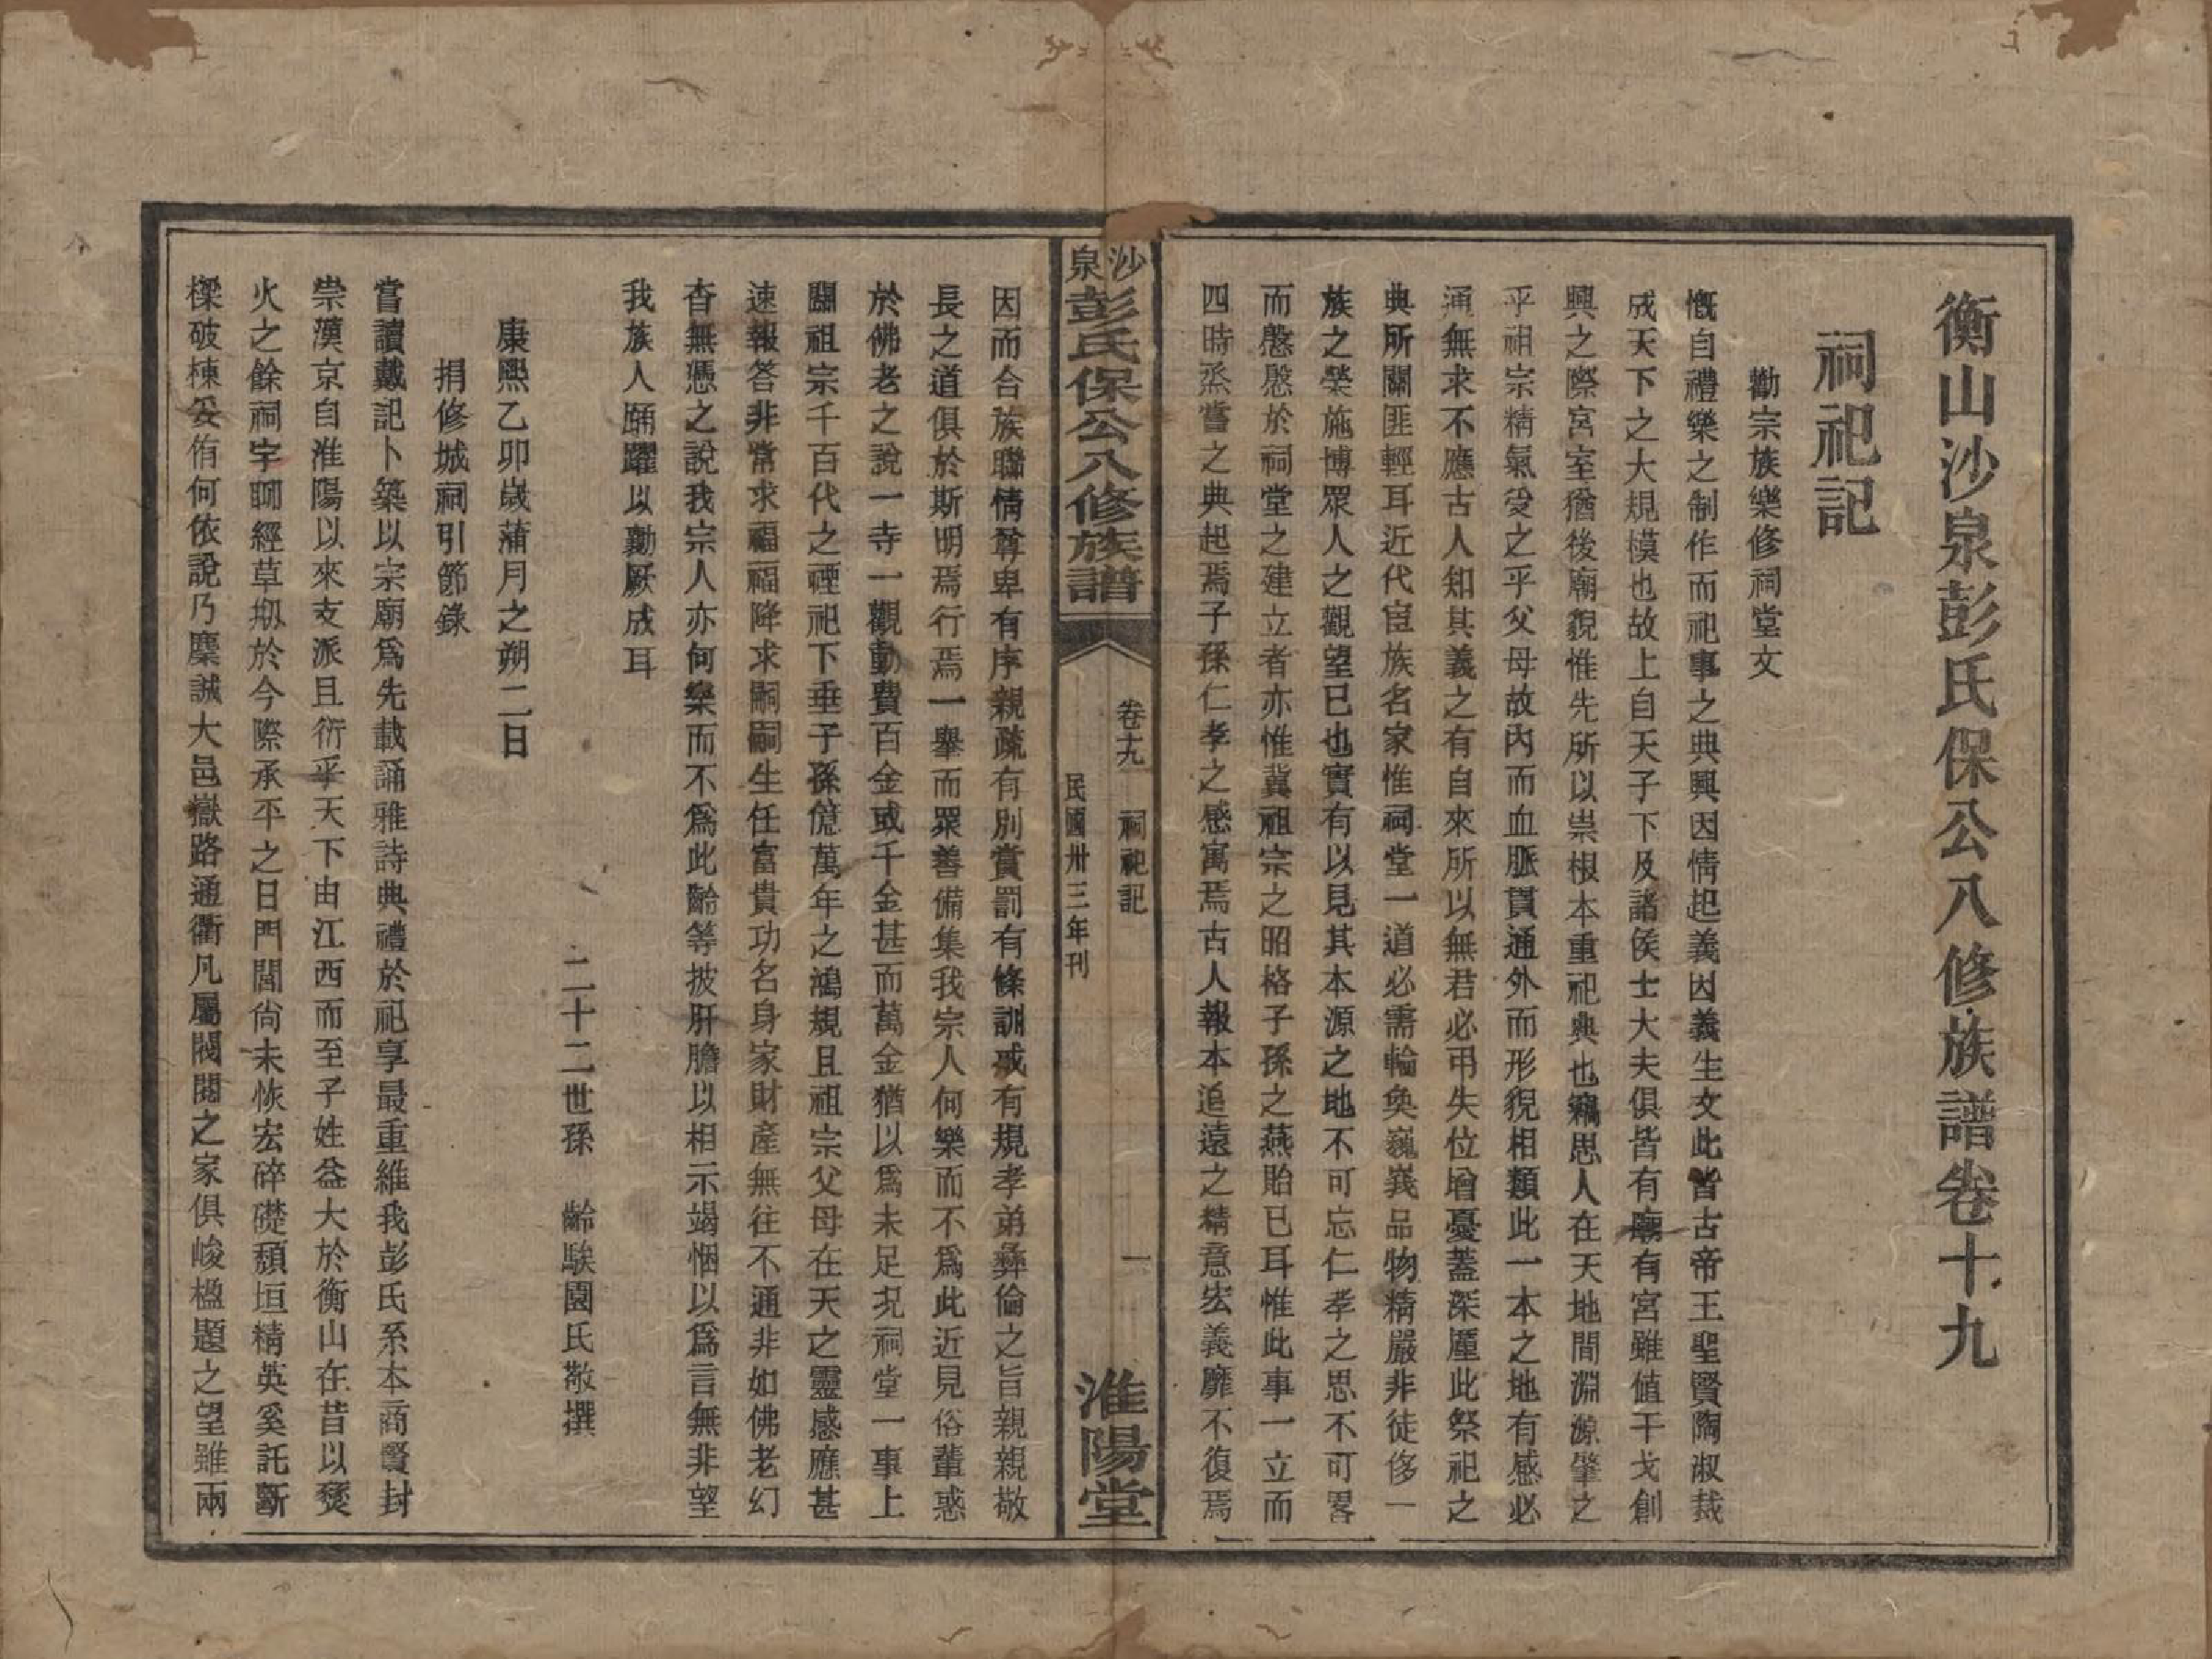 衡山沙泉彭氏保公八修族譜卷十九
祠祀記
勸宗族樂修祠堂文
慨自禮樂之制作而祀事之典興因情起義因義生文此皆古帝王聖賢陶淑裁
成天下之大規模也故上自天子下及諸侯士大夫俱皆有廟有宮雖值干戈創
興之際宮室猶後廟貌惟先所以崇根本重祀典也竊思人在天地間淵源肇之
乎祖宗精氣受之乎父母故內而血脈貫通外而形貌相類此一本之地有感必
通無求不應古人知其義之有自來所以無君必弔失位增憂蓋深廑此祭祀之
典所關匪輕耳近代宦族名家惟祠堂一道必需輪奐巍峩品物精嚴非徒侈一
族之榮施博眾人之觀望已也實有以見其本源之地不可忘仁孝之思不可畧
而慇慇於祠堂之建立者亦惟冀祖宗之昭格子孫之燕貽已耳惟此事一立而
四時烝嘗之典起焉子孫仁孝之感寓焉古人報本追遠之精意宏義靡不復焉
沙泉彭氏保公八修族譜
卷十九 祠祀記
民國卅三年刊
一
淮陽堂
因而合族聯情尊卑有序親疏有別賞罰有條訓戒有規孝弟彝倫之旨親親敬
長之道俱於斯明焉行焉一舉而眾善備集我宗人何樂而不爲此近見俗輩惑
於佛老之說一寺一觀動費百金或千金甚而萬金猶以爲未足况祠堂一事上
關祖宗千百代之禋祀下垂子孫億萬年之鴻規且祖宗父母在天之靈感應甚
速報答非常求福福降求嗣嗣生任富貴功名身家財產無往不通非如佛老幻
杳無憑之說我宗人亦何樂而不爲此齡等披肝膽以相示竭悃以爲言無非望
我族人踊躍以勷厥成耳
二十二世孫 齡騃園氏敬撰
康熙乙卯歲蒲月之朔二日
捐修城祠引節錄
嘗讀戴記卜築以宗廟爲先載誦雅詩典禮於祀享最重維我彭氏系本商賢封
崇漢京自淮陽以來支派且衍乎天下由江西而至子姓益大於衡山在昔以燹
火之餘祠宇聊經草刱於今際承平之日門閭尙未恢宏碎礎頹垣精英奚託斷
樑破棟妥侑何依說乃麋誠大邑嶽路通衢凡屬閥閱之家俱峻楹題之望雖兩